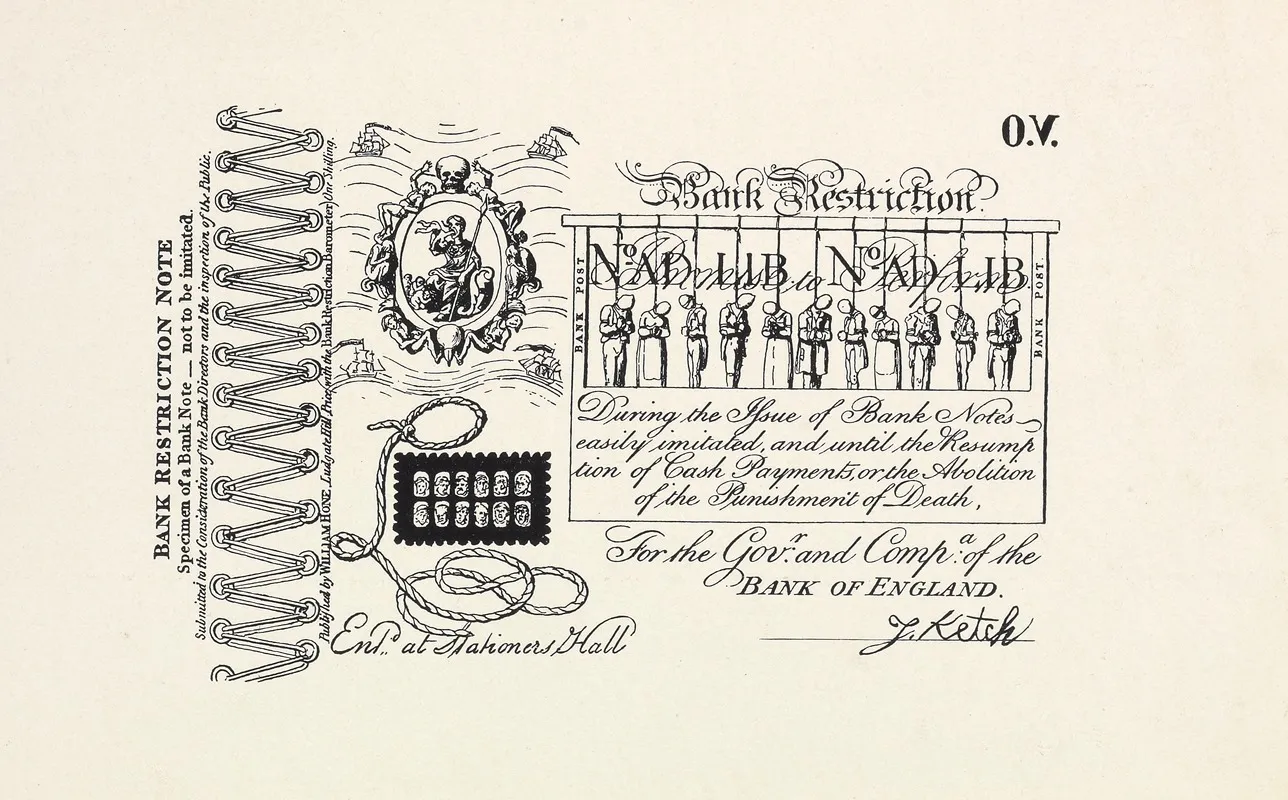 BANK RESTRICTION NOTE
Specimen of a Bank Note — not to be imitated.
Submitted to the Consideration of the Bank Directors and the inspection of the Public.
Published by WILLIAM HONE, Ludgate Hill, Price, with the Bank Restriction Barometer, One Shilling.
O.V.
Bank Restriction.
BANK POST
No. AD LIB No. AD LIB
to Perform
BANK POST
During the Issue of Bank Notes
easily imitated, and until the Resump
tion of Cash Payments, or the Abolition
of the Punishment of Death,
For the Govr. and Compa. of the
BANK OF ENGLAND.
J. Ketch
Entd. at Stationers Hall